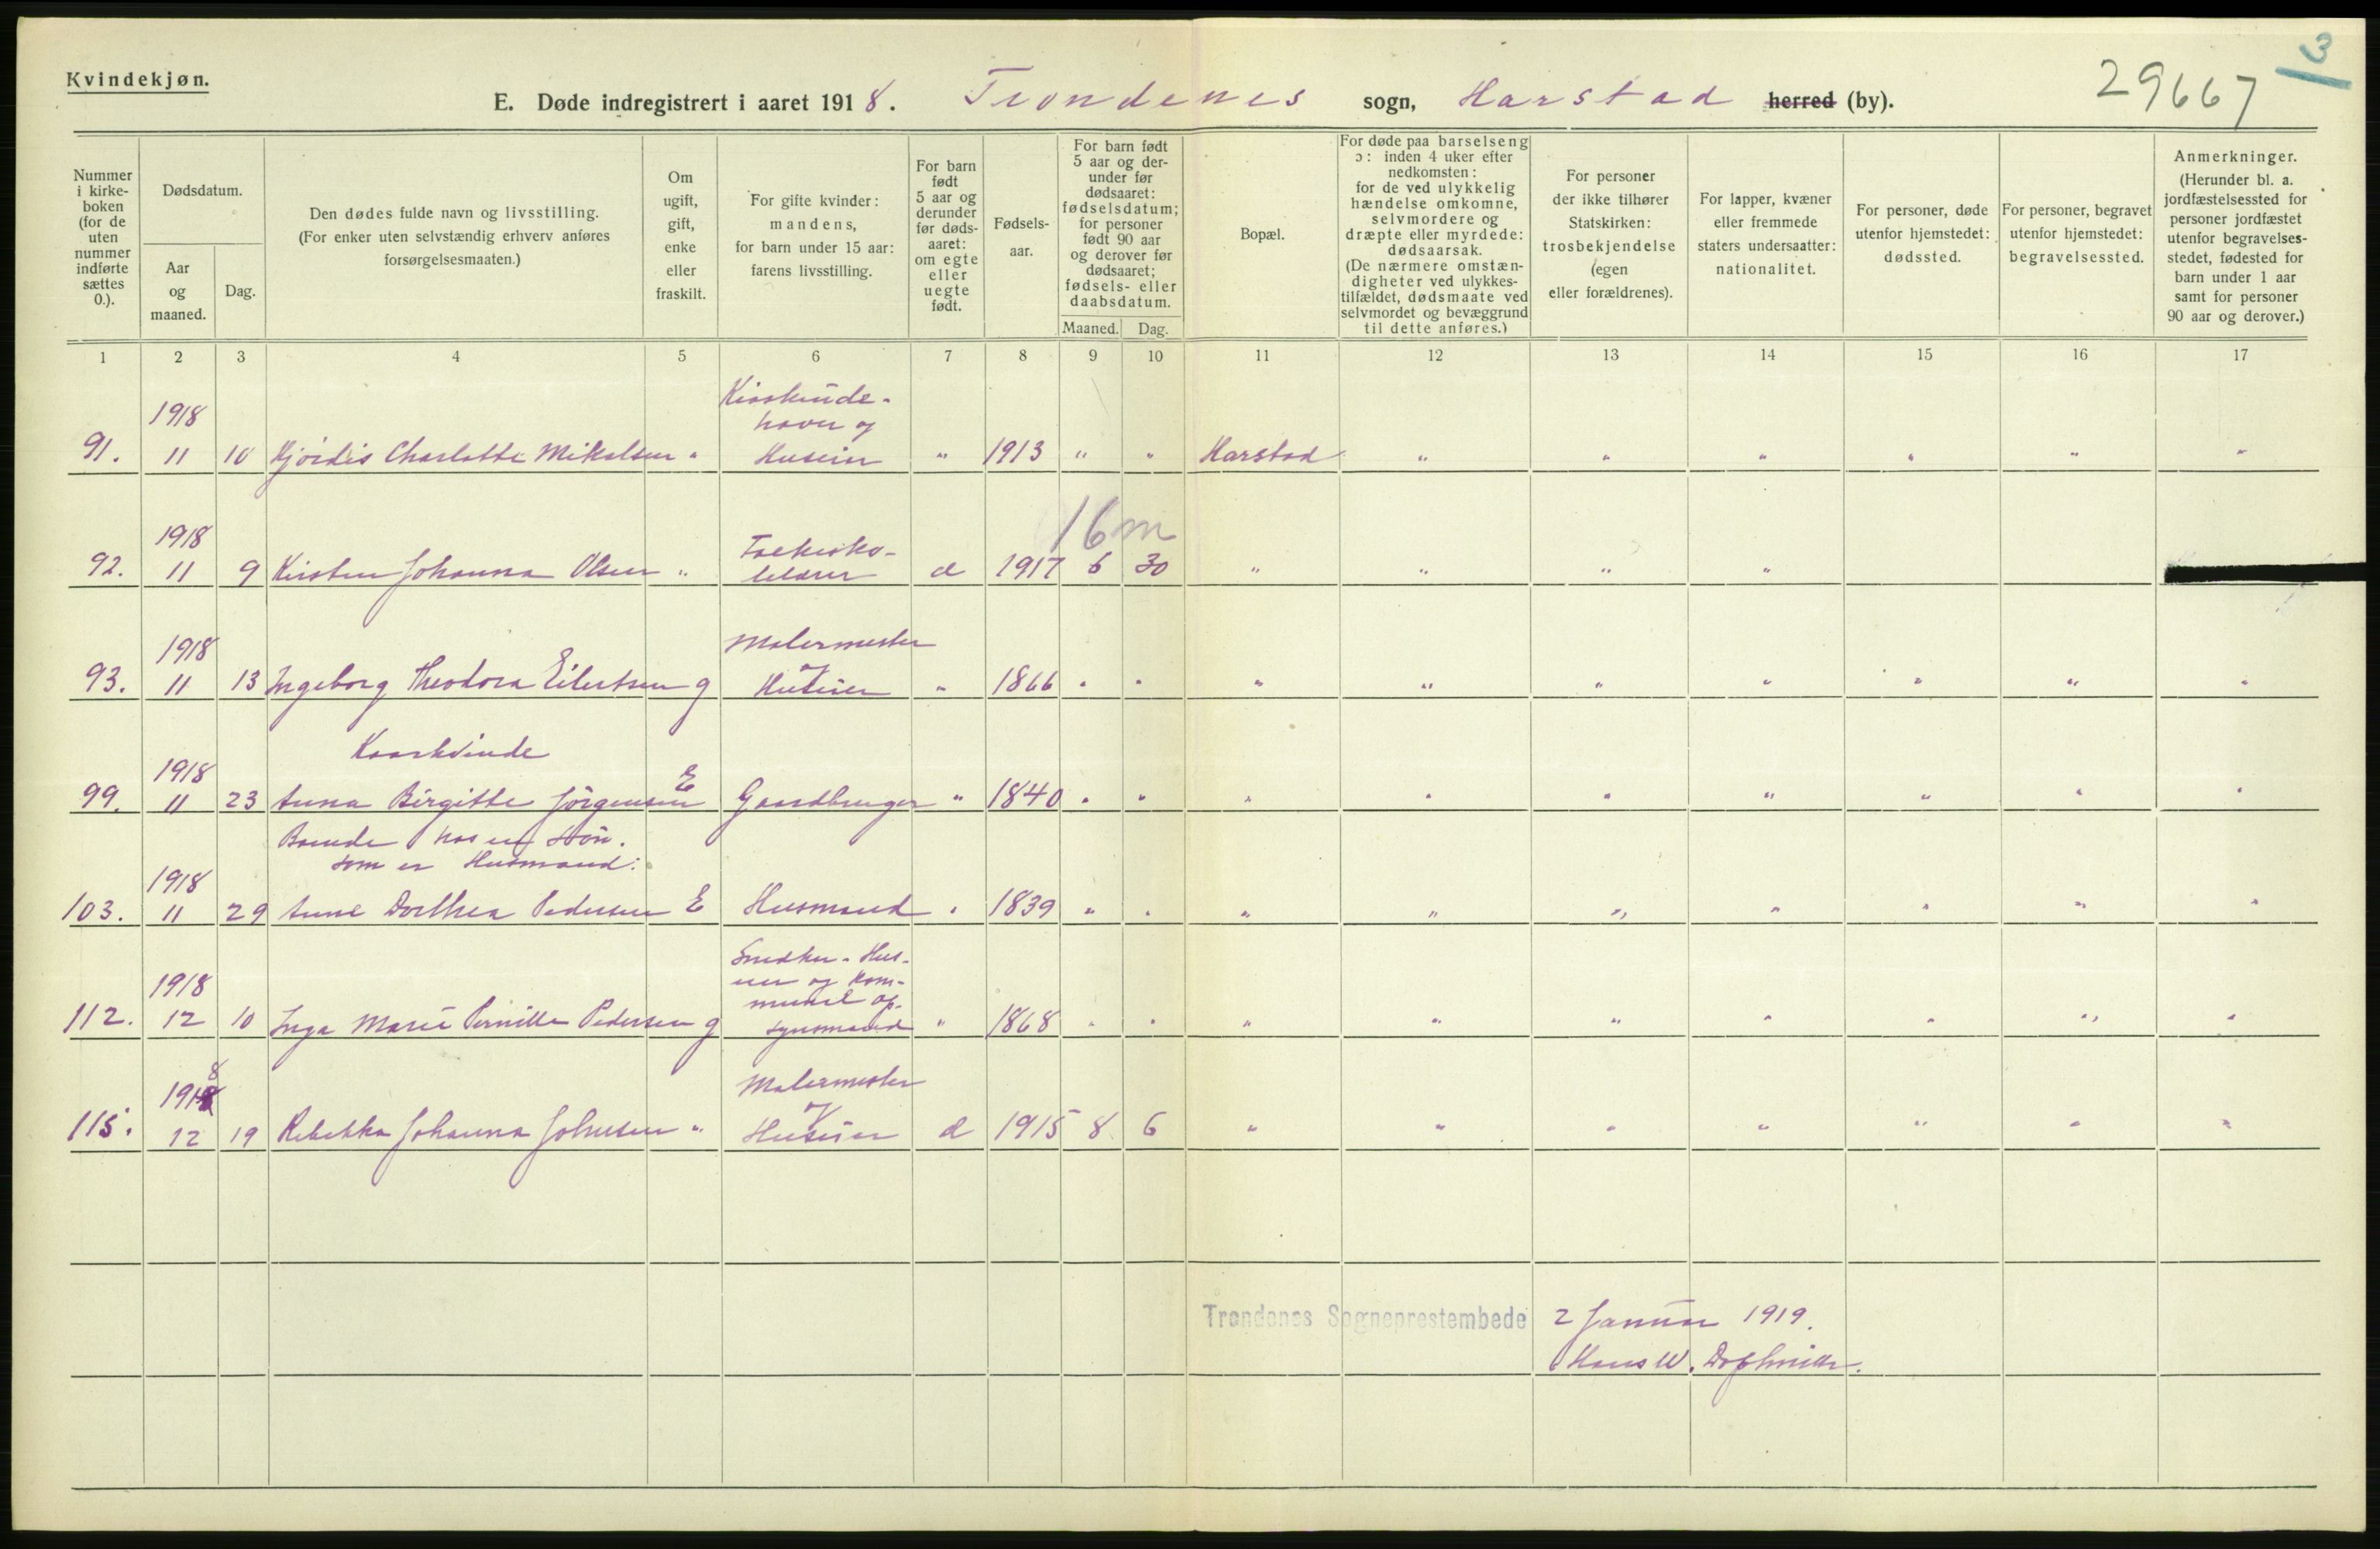 Kvindekjøn.
E. Døde indregistrert i aaret 1918. Trondenes sogn, Harstad herred (by).
29667
3
Nummer i kirkeboken (for de uten nummer indførte sættes 0.).
Dødsdatum.
Aar og maaned.
Dag.
Den dødes fulde navn og livsstilling.
(For enker uten selvstændig erhverv anføres forsørgelsesmaaten.)
Om ugift, gift, enke eller fraskilt.
For gifte kvinder: mandens, for barn under 15 aar: farens livsstilling.
For barn født 5 aar og derunder før dødsaaret: om egte eller uegte født.
Fødselsaar.
For barn født 5 aar og derunder før dødsaaret: fødselsdatum; for personer født 90 aar og derover før dødsaaret; fødsels- eller daabsdatum.
Maaned.
Dag.
Bopæl.
For døde paa barselseng ɔ: inden 4 uker efter nedkomsten: for de ved ulykkelig hændelse omkomne, selvmordere og dræpte eller myrdede: dødsaarsak. (De nærmere omstændigheter ved ulykkestilfældet, dødsmaate ved selvmordet og bevæggrund til dette anføres.)
For personer der ikke tilhører Statskirken: trosbekjendelse (egen eller forældrenes).
For lapper, kvæner eller fremmede staters undersaatter: nationalitet.
For personer, døde utenfor hjemstedet: dødssted.
For personer, begravet utenfor hjemstedet: begravelsessted.
Anmerkninger. (Herunder bl. a. jordfæstelsessted for personer jordfæstet utenfor begravelsesstedet, fødested for barn under 1 aar samt for personer 90 aar og derover.)
1 2 3 4 5 6 7 8 9 10 11 12 13 14 15 16 17
1918
haver og
91. 11 10 Hjördis Charlotte Mikalsen " Huseier " 1913 " " Harstad " " " " " "
1918 16 m
92. 11 9 Kirsten Johanna Olsen " d 1917 6 30 " " " "
1918 Malermester
og
93. 11 13 Ingeborg Theodora Eilertsen g Huseier " 1866 " " " " " " " " "
Kaarkvinde
1918
99. 11 23 Anna Birgitte Jörgensen E Gaardbruger " 1840 " " " " " " " " "
Boende hos en Søn.
som er Husmand:
1918
103. 11 29 Anne Dorthea Pedersen E Husmand " 1839 " " " " " " " " "
Snedker - Hus-
eier og kom-
1918 munal op-
112. 12 10 Inga Marie Pernille Pedersen g synsmand " 1868 " " " " " " " " "
1918 8 Malermester
og
115. 12 19 Rebekka Johanna Johnsen " Huseier d 1915 8 6 " " " " " " "
Trondenes Sogneprestembede 2 Januar 1919.
Hans W.